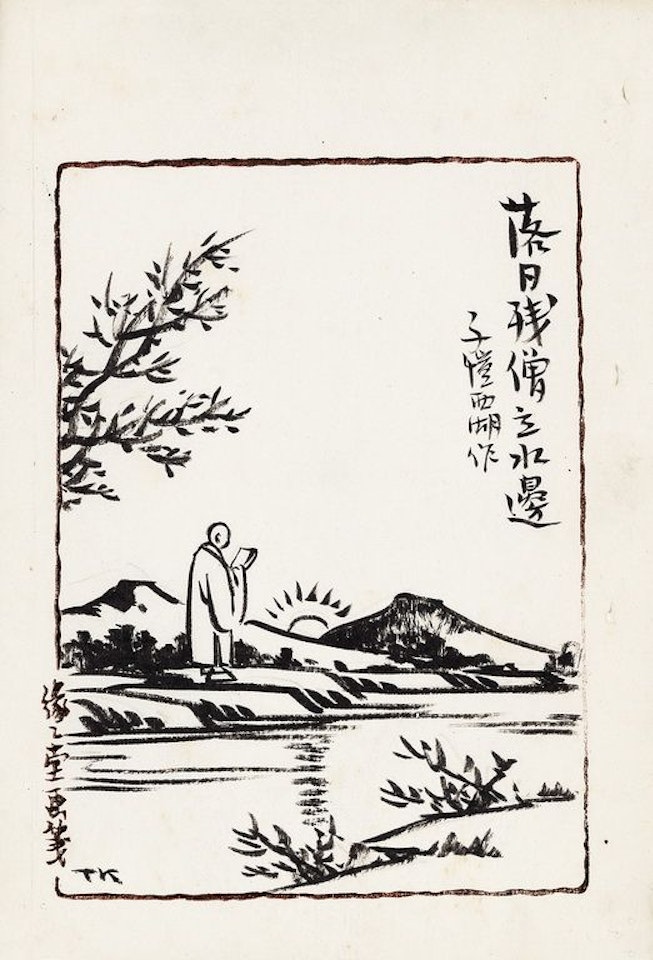 落日残僧立水邊
子愷西湖作
緣々堂畫箋
TK